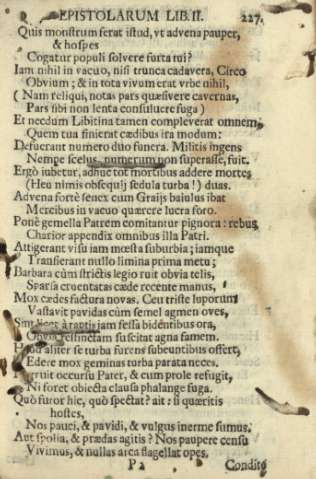 EPISTOLARUM LIB. II. 227.
Quis monstrum ferat istud, vt advena pauper,
& hospes
Cogatur populi solvere furta tui?
Iam nihil in vacuo, nisi trunca cadavera, Circo
Obvium; & in tota vivum erat vrbe nihil,
(Nam reliqui, notas pars quæsivere cavernas,
Pars sibi non lenta consuluere fuga)
Et necdum Libitina tamen compleverat omnem,
Quem tua finierat cædibus ira modum:
Defuerant numero duo funera. Militis ingens
Nempe scelus, numerum non superasse, fuit.
Ergò iubetur, adhuc tot mortibus addere mortes
(Heu nimis obsequij sedula turba!) duas.
Advena fortè senex cum Graijs baiulus ibat
Mercibus in vacuo quærere lucra foro.
Ponè gemella Patrem comitantur pignora: rebus
Charior appendix omnibus illa Patri.
Attigerant visu iam mœsta suburbia; iamque
Transierant nullo limina prima metu;
Barbara cùm strictis legio ruit obvia telis,
Sparsa cruentatas cæde recente manus,
Mox cædes factura novas. Ceu triste luporum
Vastavit pavidas cùm semel agmen oves,
Sin à raptis iam fessa bidentibus ora,
Obvia restinctam suscitat agna famem.
Haud aliter se turba furens subeuntibus offert,
Edere mox geminas turba parata neces.
occursu Pater, & cum prole refugit,
Ni foret obiecta clausa phalange fuga.
Quò furor hic, quò spectat? ait: si quæritis
hostes,
Nos pauci, & pavidi, & vulgus inerme sumus,
Aut spolia, & prædas agitis? Nos paupere censu
Vivimus, & nullas area flagellat opes.
P 2 Condito